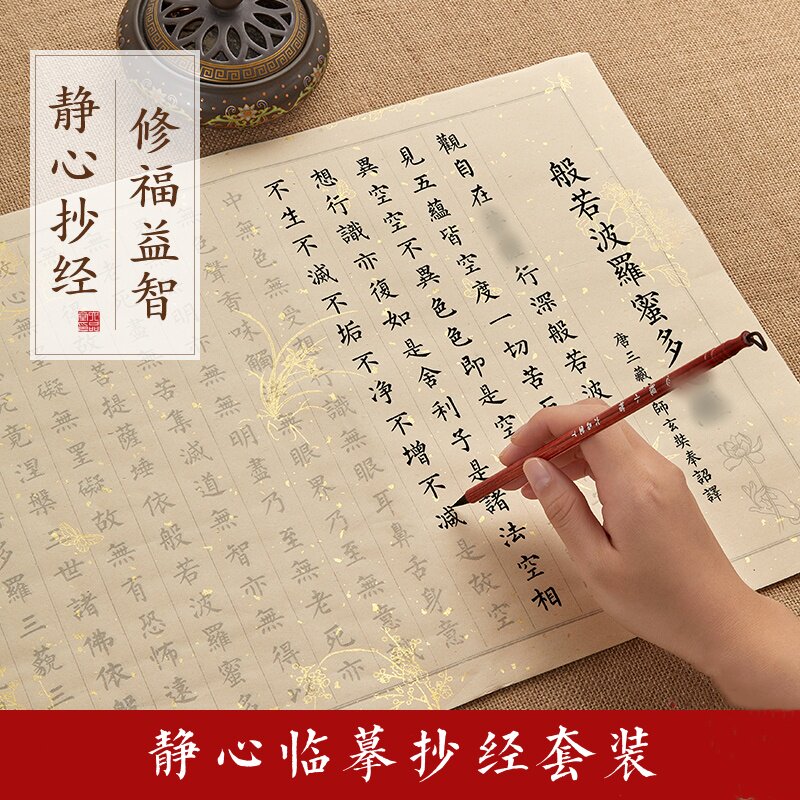 修福益智
静心抄经
般若波羅蜜多
唐三藏師玄奘奉詔譯
觀自在行深般若波
見五蘊皆空度一切苦
異空空不異色色即是空
想行識亦復如是舍利子是諸法空相
不生不滅不垢不净不增不減是故空
中無色無受想行識無眼耳鼻舌身意
色聲香味觸無眼界乃至無意
無明盡乃至無老死亦
無苦集滅道無智亦無得
菩提薩埵依般若波羅蜜多
礙無罣礙故無有恐怖遠
究竟涅槃三世諸佛依般
多羅三藐三
静心临摹抄经套装